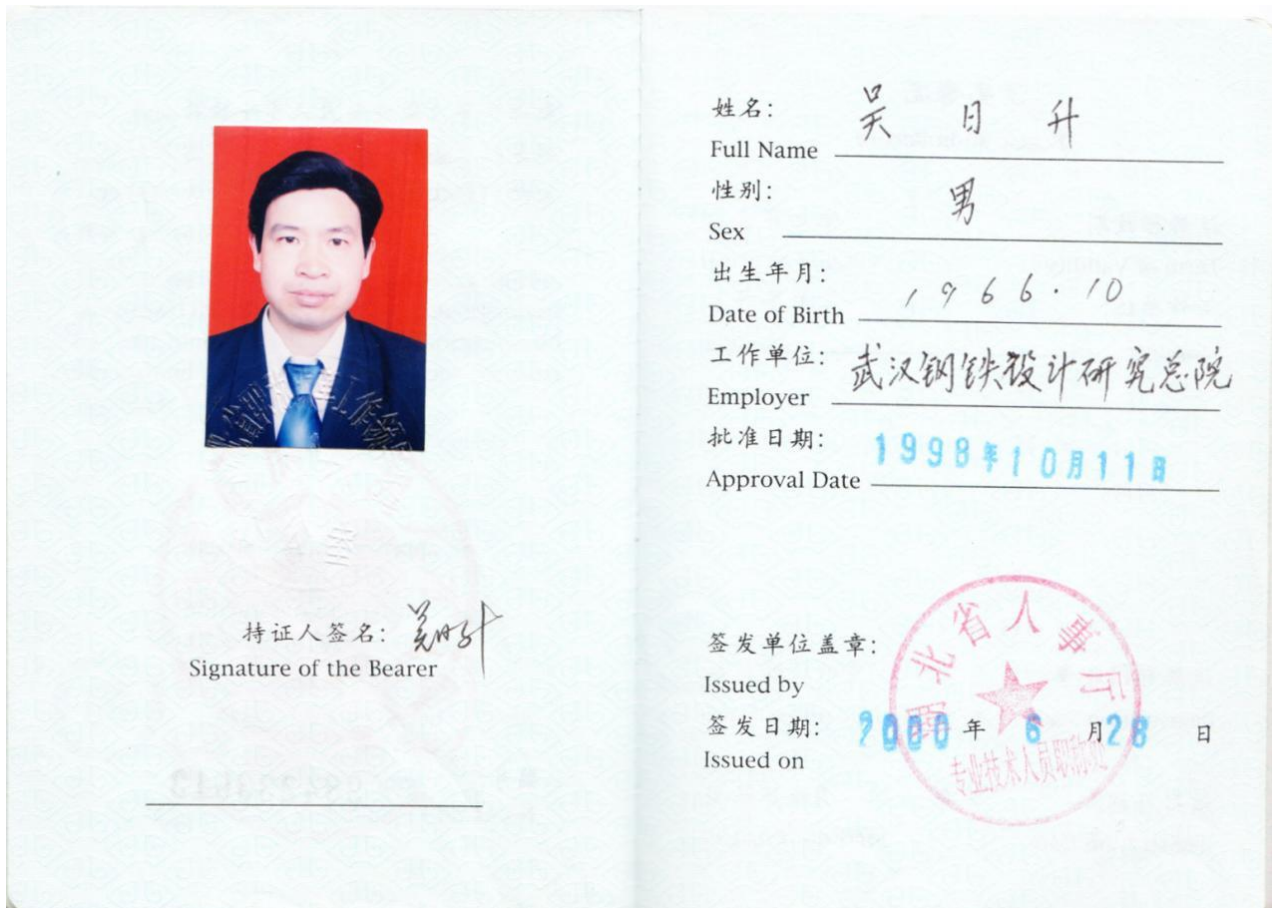 持证人签名: 吴日升
Signature of the Bearer
姓名: 吴日升
Full Name
性别: 男
Sex
出生年月: 1966.10
Date of Birth
工作单位: 武汉钢铁设计研究总院
Employer
批准日期: 1998年10月11日
Approval Date
签发单位盖章:
Issued by
湖北省人事厅
专业技术人员职称处
签发日期: 2000年6月28日
Issued on